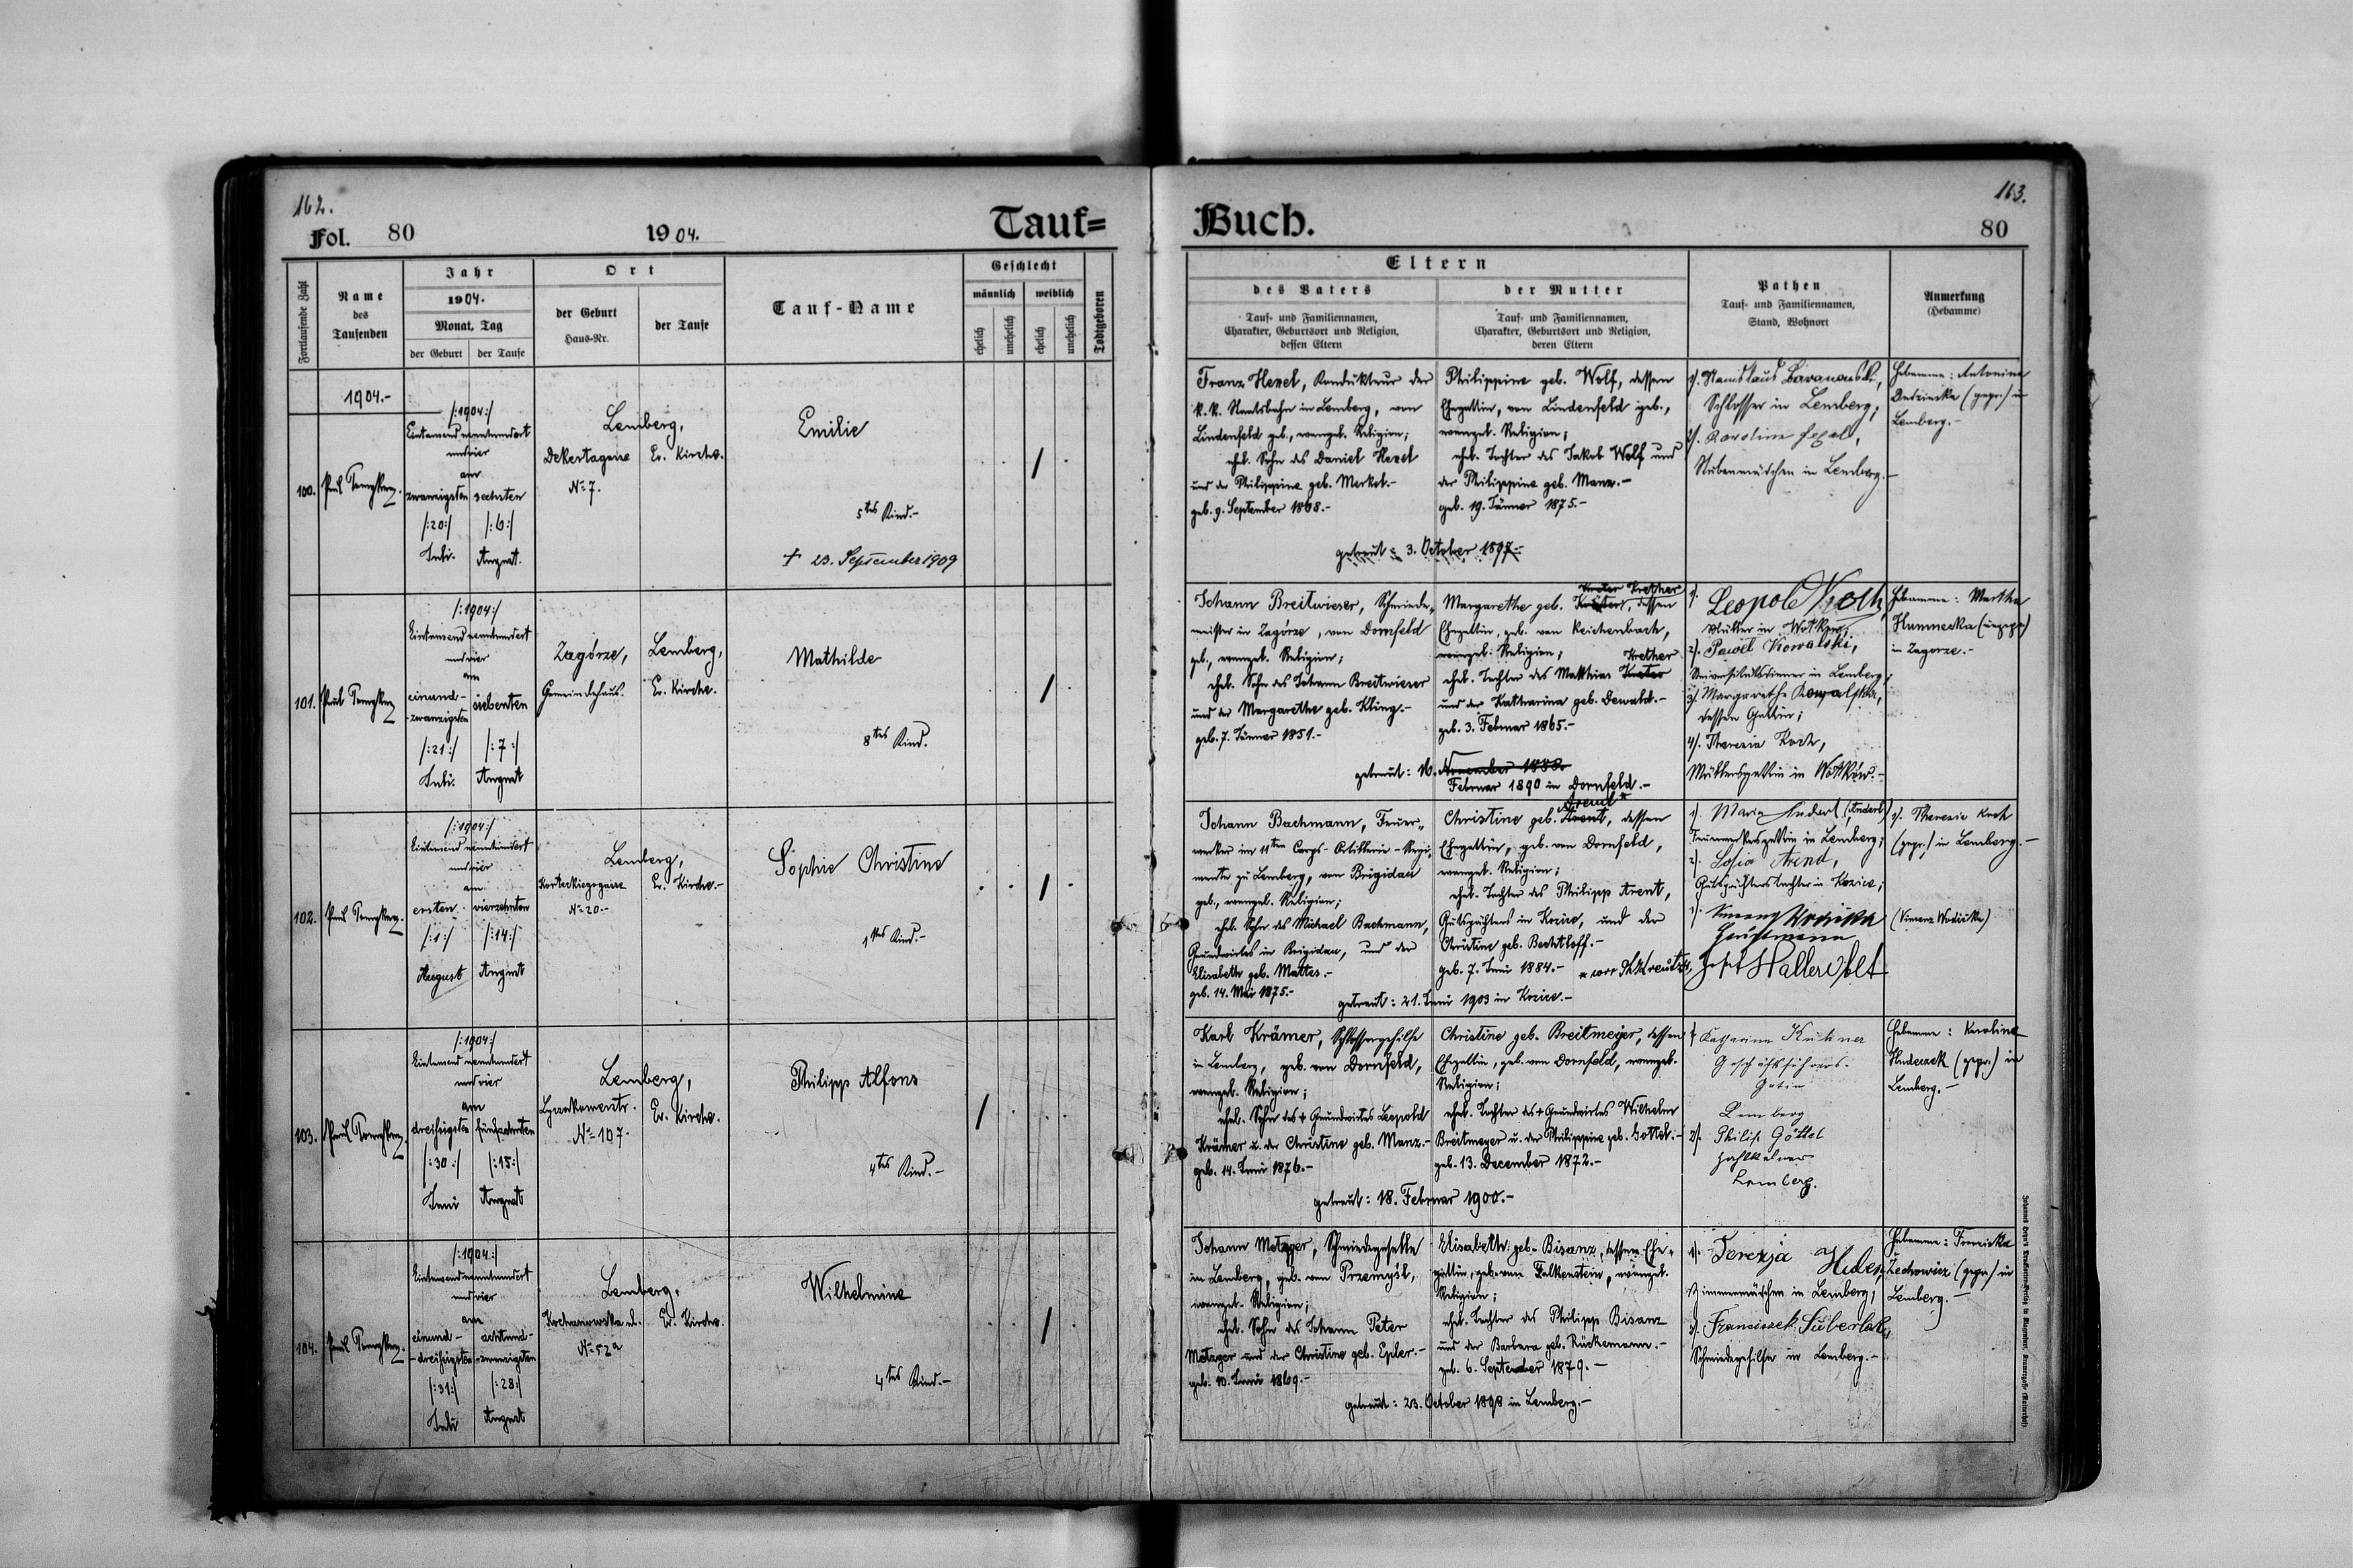 162.
Fol. 80
1904.
Tauf=
Fortlaufende Zahl
Name
des
Taufenden
Jahr
1904.
Monat, Tag
der Geburt
der Taufe
Ort
der Geburt
Haus-Nr.
der Taufe
Tauf-Name
Geschlecht
männlich
weiblich
ehelich
unehelich
ehelich
unehelich
Todtgeboren
1904.-
100.
/:1904:/
Eintausend neunhundert
und vier
am
zwanzigsten
sechsten
/:20:/
/:6:/
Juli.
August.
Lemberg,
Dekertgasse
Ev. Kirche.
№ 7.
Emilie
5tes Kind.-
† 23. September 1909
101.
/:1904:/
Eintausend neunhundert
und vier
am
einund-
siebenten
-zwanzigsten
/:21:/
/:7:/
Juli.
August
Zagórze,
Lemberg,
Gemeindehaus.
Ev. Kirche.
Mathilde
8tes Kind.
102.
/:1904:/
Eintausend neunhundert
und vier
am
ersten
vierzehnten
/:1:/
/:14:/
August
August
Lemberg,
Ev. Kirche.-
№ 20.-
Sophie Christine
1tes Kind.-
103.
/:1904:/
Eintausend neunhundert
und vier
am
dreißigsten
fünfzehnten
/:30:/
/:15:/
Juni
August
Lemberg,
Ev. Kirche.
№ 107.
Philipp Alfons
4tes Kind.-
104.
/:1904:/
Eintausend neunhundert
und vier
am
einund-
achtund-
-dreißigsten
-zwanzigsten
/:31:/
/:28:/
Juli
August
Lemberg,
Ev. Kirche.
№ 52a
Wilhelmine
4tes Kind.-
163.
Buch.
80
Eltern
des Vaters
Tauf- und Familiennamen,
Charakter, Geburtsort und Religion,
dessen Eltern
der Mutter
Tauf- und Familiennamen,
Charakter, Geburtsort und Religion,
deren Eltern
Pathen
Tauf- und Familiennamen,
Stand, Wohnort
Anmerkung
(Hebamme)
Franz Hexel, Kondukteur der
k.k. Staatsbahn in Lemberg, von
Lindenfeld geb., evangel. Religion;
ehel. Sohn des Daniel Hexel
und der Philippine geb. Merkel.-
geb. 9. September 1868.-
Philippine geb. Wolf, dessen
Ehegattin, von Lindenfeld geb.,
evangel. Religion;
ehel. Tochter des Jakob Wolf und
der Philippine geb. Manz.-
geb. 19. Jänner 1875.-
getraut: 3. October 1897.-
1/. Stanislaus
Schlosser in Lemberg;
2/. Karolina Hexel,
Stubenmädchen in Lemberg.-
Hebamme: Antonina
(gepr.) in
Lemberg.-
Johann Breitwieser, Schmiede-
meister in Zagórze, von Dornfeld
geb., evangel. Religion;
ehel. Sohn des Johann Breitwieser
und der Margarethe geb. Kling.-
geb. 7. Jänner 1851.-
Krether
Margarethe geb. dessen
Ehegattin, geb. von Reichenbach,
evangel. Religion;
Krether
ehel. Tochter des Matthias
und der Katharina geb. Dewald.-
geb. 3. Februar 1865.-
getraut: 16. November 1888.
Februar 1890 in Dornfeld.-
1/. Leopold Koch,
Müller in
2/. Paweł Kowalski,
Universitätsdiener in Lemberg;
3/. Margarethe Kowalska,
dessen Gattin;
4/. Theresia Koch,
Müllersgattin in
Hebamme: Martha
in Zagorze.-
Johann Bachmann, Feuer-
werker im 11ten Corps-Artillerie-Regi-
mente zu Lemberg, von Brigidau
geb., evangel. Religion;
ehel. Sohn des Michael Bachmann,
Grundwirtes in Brigidau, und der
Elisabeth geb. Mattes.-
geb. 14. Mai 1875.-
Arend *
Christine geb. Arent, dessen
Ehegattin, geb. von Dornfeld,
evangel. Religion;
ehel. Tochter des Philipp Arent,
Gutspächters in Kozice, und der
Christine geb. Bechtloff.-
geb. 7. Juni 1884.-
getraut: 21. Juni 1903 in Kozice.-
1/. Maria Andert (Andert)
in Lemberg;
2/. Sofia Arend,
Gutspächterstochter in Kozice;
Hauptmann
Josef
1/. Theresia Koch
(gepr.) in Lemberg.-
(Vinzenz Wodička)
Karl Krämer, Schlossergehilfe
in Lemberg, geb. von Dornfeld,
evangel. Religion;
ehel. Sohn des + Grundwirtes Leopold
Krämer u. der Christine geb. Manz.-
geb. 14. Juni 1876.-
Christine geb. Breitmeyer, dessen
Ehegattin, geb. von Dornfeld, evangel.
Religion;
ehel. Tochter des + Grundwirtes Wilhelm
Breitmeyer u. der Philippine geb. Göttel.-
geb. 13. December 1872.-
getraut: 18. Februar 1900.-
1/. Katharina
Geschäftsführers-
Gatin
Lemberg
2/. Philip Göttel
Zahlkelner
Lemberg.
Hebamme: Karolina
(gepr.) in
Lemberg.-
Johann Metzger, Schmiedegeselle
in Lemberg, geb. von Przemyśl,
evangel. Religion;
ehel. Sohn des Johann Peter
Metzger und der Christine geb. Epler.-
geb. 10. Juni 1869.-
Elisabeth geb. Bisanz, dessen Ehe-
gattin, geb. von Falkenstein, evangel.
Religion;
ehel. Tochter des Philipp Bisanz
und der Barbara geb. Rückemann.-
geb. 6. September 1879.-
getraut: 23. October 1898 in Lemberg.-
1/. Terezja
Zimmermädchen in Lemberg;
2/. Franciszek
Schmiedegehilfe in Lemberg.-
Hebamme:
Zechowicz (gepr.) in
Lemberg.-